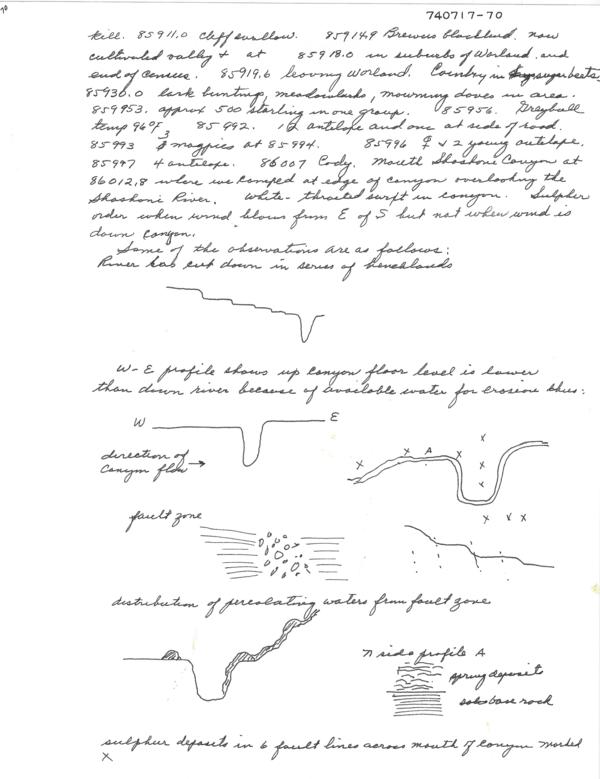 740717-70
kill. 85911.0 cliff swallow. 85914.9 Brewers blackbird. now
cultivated valley + at 85918.0 in suburbs of Worland. and
end of census. 85919.6 leaving Worland. Country in sugar beets.
85930.0 lark bunting, meadowlarks, mourning doves in area.
85995.3. approx 500 starling in one group. 85956. Greybull
temp 96°F. 85992. 12 antelope and one at side of road.
85993 3 magpies at 85994. 85996 ♀ + 2 young antelope.
85997 4 antelope. 86007 Cody. Mouth Shoshoni Canyon at
86012.8 where we camped at edge of canyon overlooking the
Shoshoni River. White-throated swift in canyon. Sulpher
order when wind blows from E of S but not when wind is
down canyon.
Some of the observations are as follows:
River has cut down in series of benchlands
W-E profile shows up canyon floor level is lower
than down river because of available water for erosion thus:
W E
direction of
canyon flow →
x x A x x x x x x x
fault zone
distribution of percolating waters from fault zone
n side profile A
spring deposits
base rock
sulphur deposits in 6 fault lines across mouth of canyon marked
x